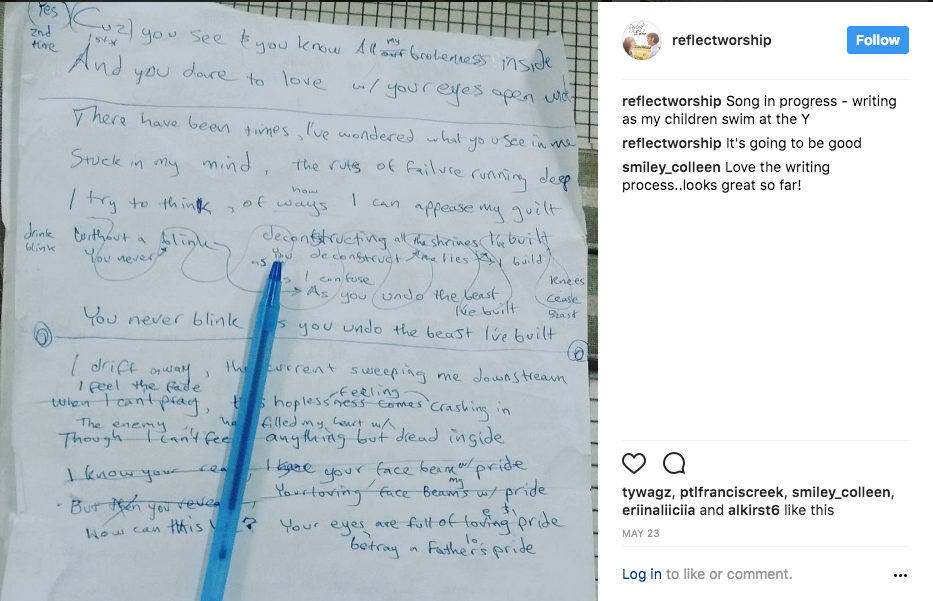 (Yes) (Cuz) you see & you know All my our brokenness inside
2nd time
1st x
And you dare to love w/ your eyes open wid
There have been times, I've wondered what you see in me
Stuck in my mind, the ruts of failure running deep
how
I try to think, of ways I can appease my guilt
drink
blink
Without a blink deconstructing all the shrines I've built
You never as You deconstruct the lies I build
I confuse
knees
cease
Beast
As you undo the beast
I've built
You never blink as you undo the beast I've built
I drift away, the current sweeping me downstream
I feel the fade
feeling
When I can't pray, this hoplessness comes crashing in
The enemy filled my heart w/
Though I can't feel anything but dread inside
I know your , I see your face beam w/ pride
But then you Your loving face Beams w/ pride
my
How can this ? Your eyes are full of loving pride
betray a Father's pride
reflectworship
Follow
reflectworship Song in progress - writing
as my children swim at the Y
reflectworship It's going to be good
smiley_colleen Love the writing
process..looks great so far!
tywagz, ptlfranciscreek, smiley_colleen,
eriinaliiciia and alkirst6 like this
MAY 23
Log in to like or comment.